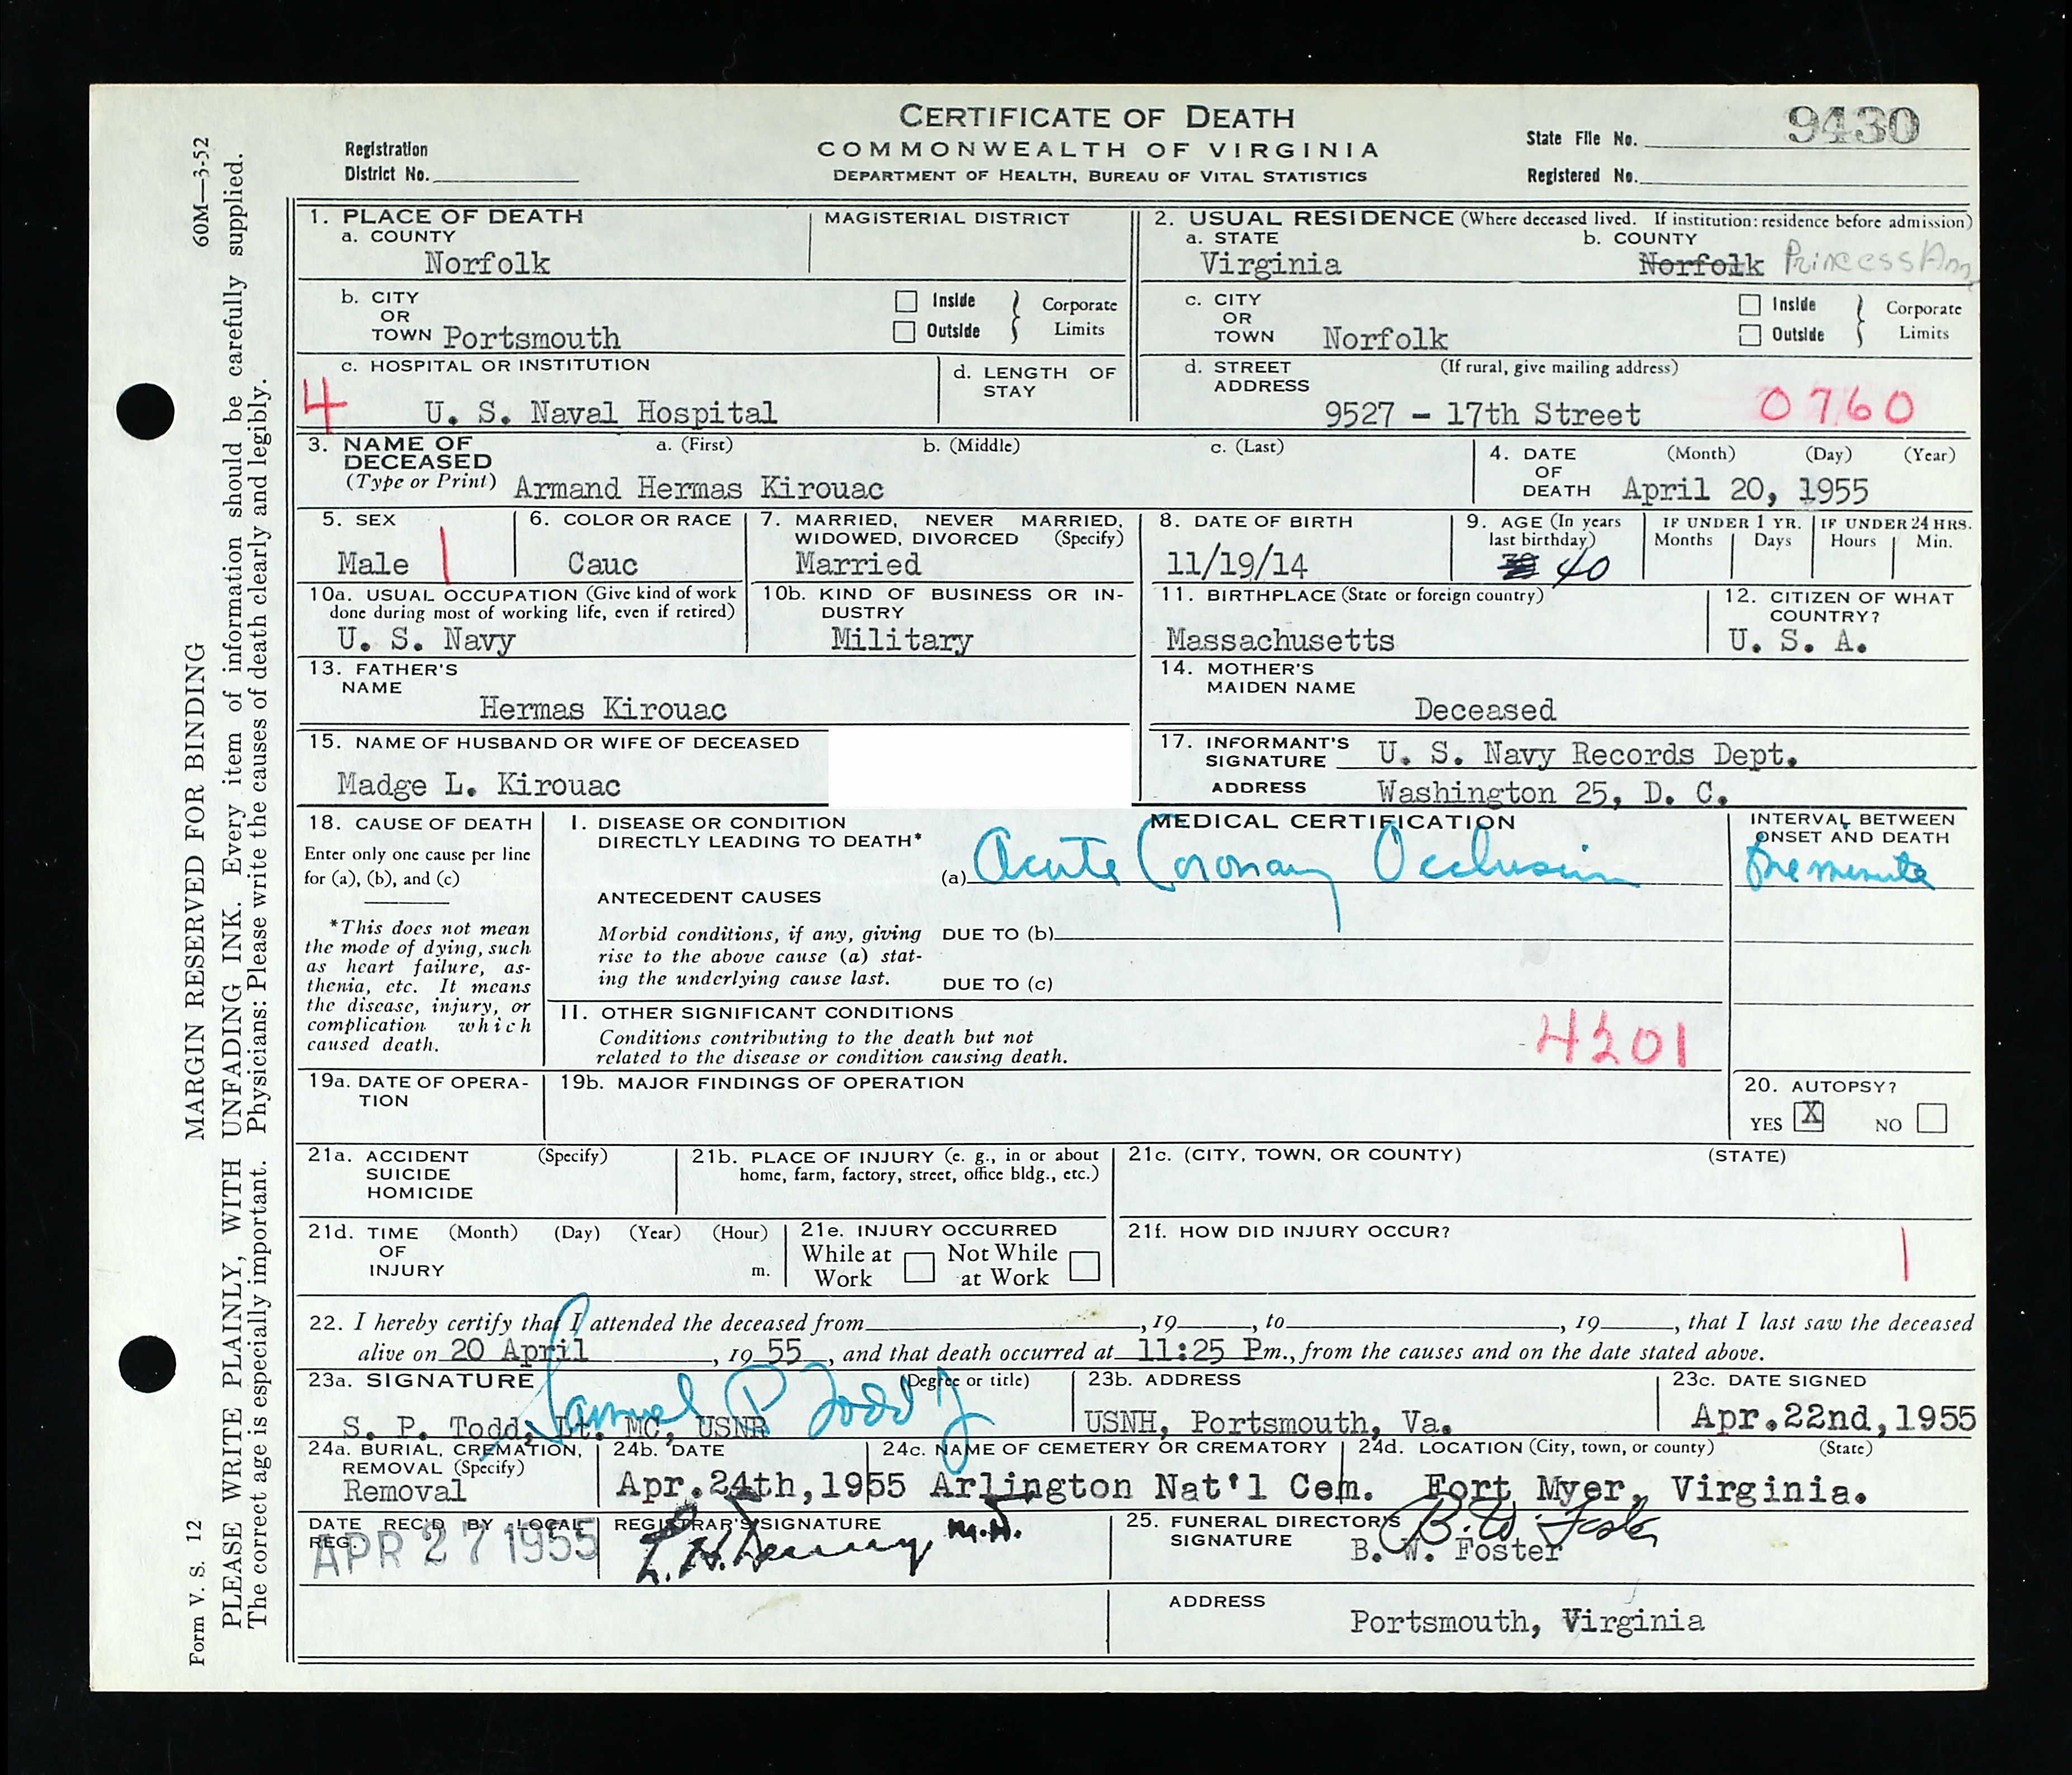 CERTIFICATE OF DEATH
COMMONWEALTH OF VIRGINIA
DEPARTMENT OF HEALTH, BUREAU OF VITAL STATISTICS
Registration District No.
State File No. 9430
Registered No.
60M—3-52
MARGIN RESERVED FOR BINDING
PLEASE WRITE PLAINLY, WITH UNFADING INK. Every item of information should be carefully supplied.
The correct age is especially important. Physicians: Please write the causes of death clearly and legibly.
Form V. S. 12
1. PLACE OF DEATH
a. COUNTY
Norfolk
MAGISTERIAL DISTRICT
2. USUAL RESIDENCE (Where deceased lived. If institution: residence before admission)
a. STATE
Virginia
b. COUNTY
Norfolk Princess Ann
b. CITY OR TOWN Portsmouth
Inside Outside } Corporate Limits
c. CITY OR TOWN Norfolk
Inside Outside } Corporate Limits
c. HOSPITAL OR INSTITUTION
4 U. S. Naval Hospital
d. LENGTH OF STAY
d. STREET ADDRESS (If rural, give mailing address)
9527 - 17th Street 0760
3. NAME OF DECEASED (Type or Print)
a. (First) b. (Middle) c. (Last)
Armand Hermas Kirouac
4. DATE OF DEATH (Month) (Day) (Year)
April 20, 1955
5. SEX
Male 1
6. COLOR OR RACE
Cauc
7. MARRIED, NEVER MARRIED, WIDOWED, DIVORCED (Specify)
Married
8. DATE OF BIRTH
11/19/14
9. AGE (In years last birthday)
40
IF UNDER 1 YR. Months Days
IF UNDER 24 HRS. Hours Min.
10a. USUAL OCCUPATION (Give kind of work done during most of working life, even if retired)
U. S. Navy
10b. KIND OF BUSINESS OR INDUSTRY
Military
11. BIRTHPLACE (State or foreign country)
Massachusetts
12. CITIZEN OF WHAT COUNTRY?
U. S. A.
13. FATHER'S NAME
Hermas Kirouac
14. MOTHER'S MAIDEN NAME
Deceased
15. NAME OF HUSBAND OR WIFE OF DECEASED
Madge L. Kirouac
17. INFORMANT'S SIGNATURE U. S. Navy Records Dept.
ADDRESS Washington 25, D. C.
18. CAUSE OF DEATH
Enter only one cause per line for (a), (b), and (c)
*This does not mean the mode of dying, such as heart failure, asthenia, etc. It means the disease, injury, or complication which caused death.
MEDICAL CERTIFICATION
I. DISEASE OR CONDITION DIRECTLY LEADING TO DEATH*
(a) Acute Coronary Occlusion
INTERVAL BETWEEN ONSET AND DEATH
One minute
ANTECEDENT CAUSES
Morbid conditions, if any, giving rise to the above cause (a) stating the underlying cause last.
DUE TO (b)
DUE TO (c)
II. OTHER SIGNIFICANT CONDITIONS
Conditions contributing to the death but not related to the disease or condition causing death.
4201
19a. DATE OF OPERATION
19b. MAJOR FINDINGS OF OPERATION
20. AUTOPSY?
YES X NO
21a. ACCIDENT SUICIDE HOMICIDE (Specify)
21b. PLACE OF INJURY (e. g., in or about home, farm, factory, street, office bldg., etc.)
21c. (CITY, TOWN, OR COUNTY) (STATE)
21d. TIME OF INJURY (Month) (Day) (Year) (Hour) m.
21e. INJURY OCCURRED
While at Work Not While at Work
21f. HOW DID INJURY OCCUR?
1
22. I hereby certify that I attended the deceased from , 19 , to , 19 , that I last saw the deceased
alive on 20 April , 19 55 , and that death occurred at 11:25 Pm., from the causes and on the date stated above.
23a. SIGNATURE (Degree or title)
Samuel P Todd Jr
S. P. Todd, Lt. MC, USNR
23b. ADDRESS
USNH, Portsmouth, Va.
23c. DATE SIGNED
Apr.22nd,1955
24a. BURIAL, CREMATION, REMOVAL (Specify)
Removal
24b. DATE
Apr.24th,1955
24c. NAME OF CEMETERY OR CREMATORY
Arlington Nat'l Cem.
24d. LOCATION (City, town, or county) (State)
Fort Myer, Virginia.
DATE REC'D BY LOCAL REG.
APR 27 1955
REGISTRAR'S SIGNATURE
M.D.
25. FUNERAL DIRECTOR'S SIGNATURE
B. W. Foster
B. W. Foster
ADDRESS
Portsmouth, Virginia